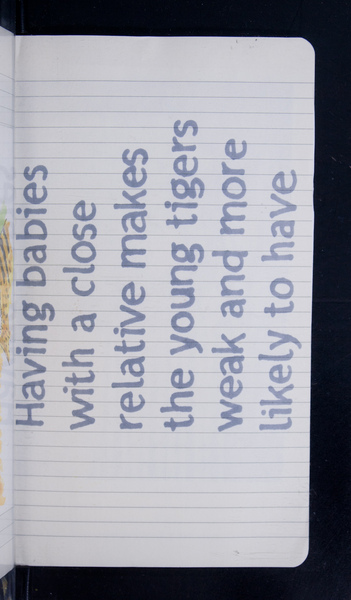 Having babies
with a close
relative makes
the young tigers
weak and more
likely to have